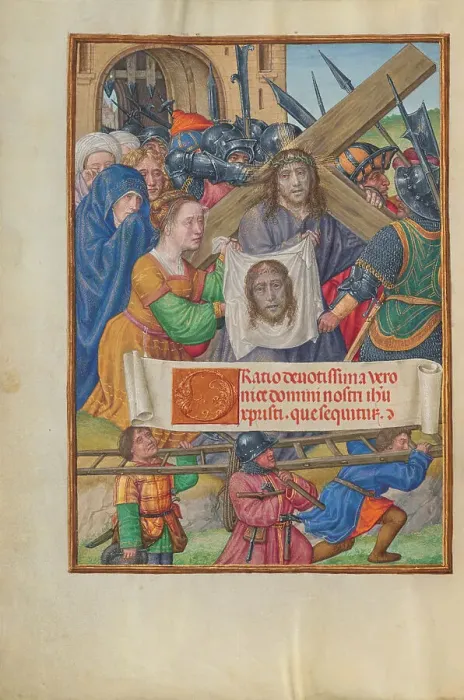 Oratio deuotissima vero
nice domini nostri ihũ
xpristi. que sequitur.